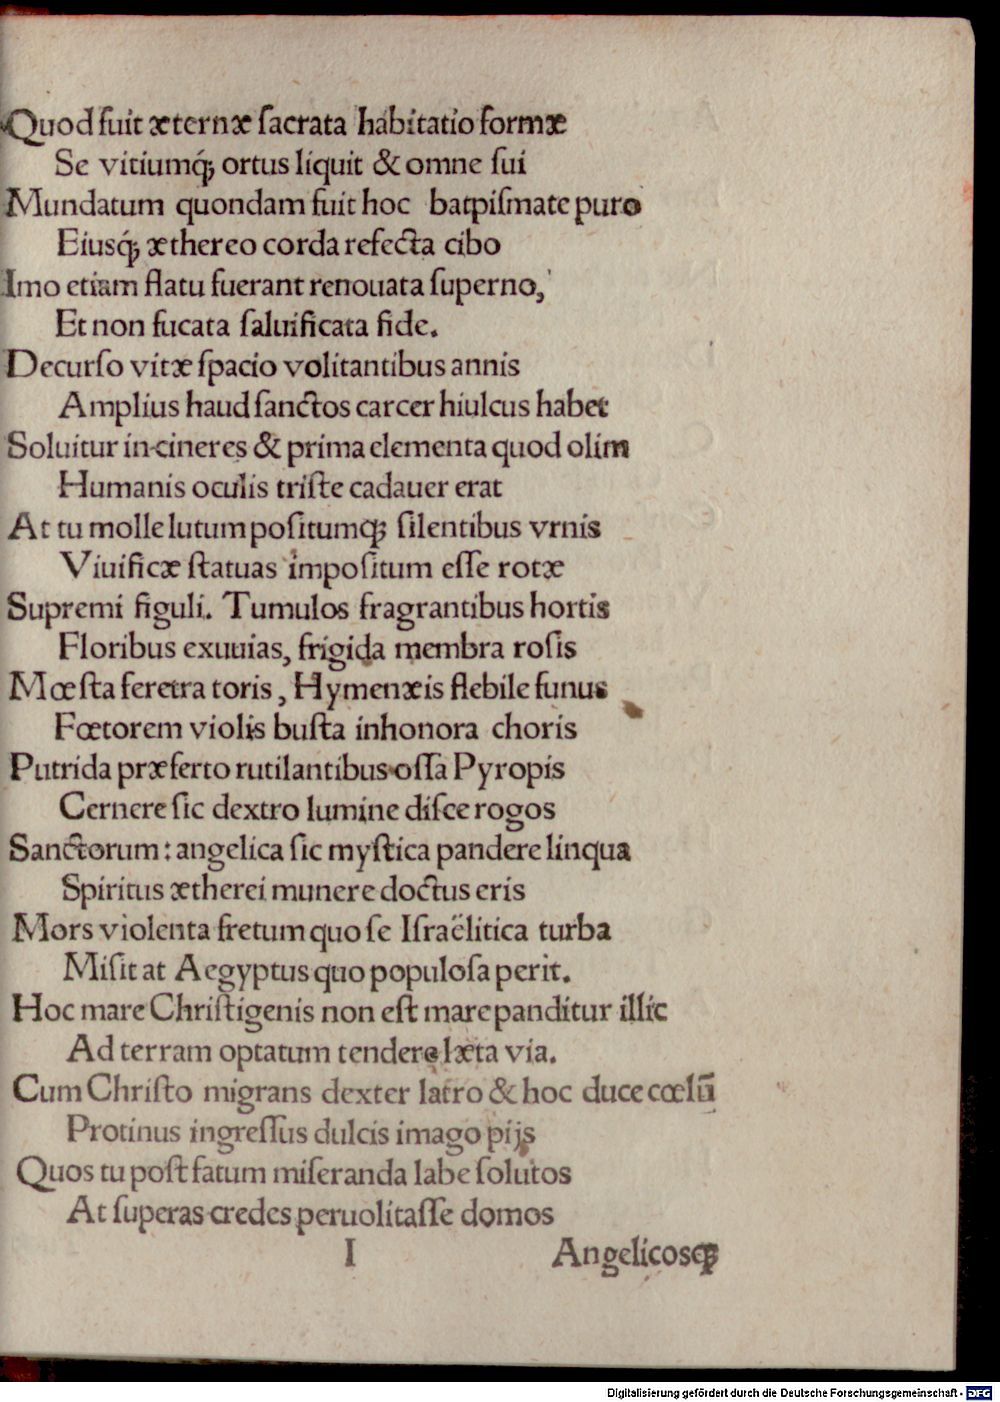 Quod fuit æternæ ſacrata habitatio formæ
Se vitiumq́; ortus liquit & omne ſui
Mundatum quondam fuit hoc batpiſmate puro
Eiusq́; æthereo corda refecta cibo
Imo etiam flatu fuerant renouata ſuperno,
Et non fucata ſaluificata fide.
Decurſo vitæ ſpacio volitantibus annis
Amplius haud ſanctos carcer hiulcus habet
Soluitur in cineres & prima elementa quod olim
Humanis oculis triſte cadauer erat
At tu molle lutum poſitumq; ſilentibus vrnis
Viuificæ ſtatuas impoſitum eſſe rotæ
Supremi figuli. Tumulos fragrantibus hortis
Floribus exuuias, frigida membra roſis
Mœſta feretra toris, Hymenæis flebile funus
Fœtorem violis buſta inhonora choris
Putrida præferto rutilantibus oſſa Pyropis
Cernere ſic dextro lumine diſce rogos
Sanctorum: angelica ſic myſtica pandere linqua
Spiritus ætherei munere doctus eris
Mors violenta fretum quo ſe Iſraëlitica turba
Miſit at Aegyptus quo populoſa perit.
Hoc mare Chriſtigenis non eſt mare panditur illic
Ad terram optatum tendere læta via.
Cum Chriſto migrans dexter latro & hoc duce cœlū
Protinus ingreſſus dulcis imago pijs
Quos tu poſt fatum miſeranda labe ſolutos
At ſuperas credes peruolitaſſe domos
I Angelicosq;
Digitalisierung gefördert durch die Deutsche Forschungsgemeinschaft - DFG